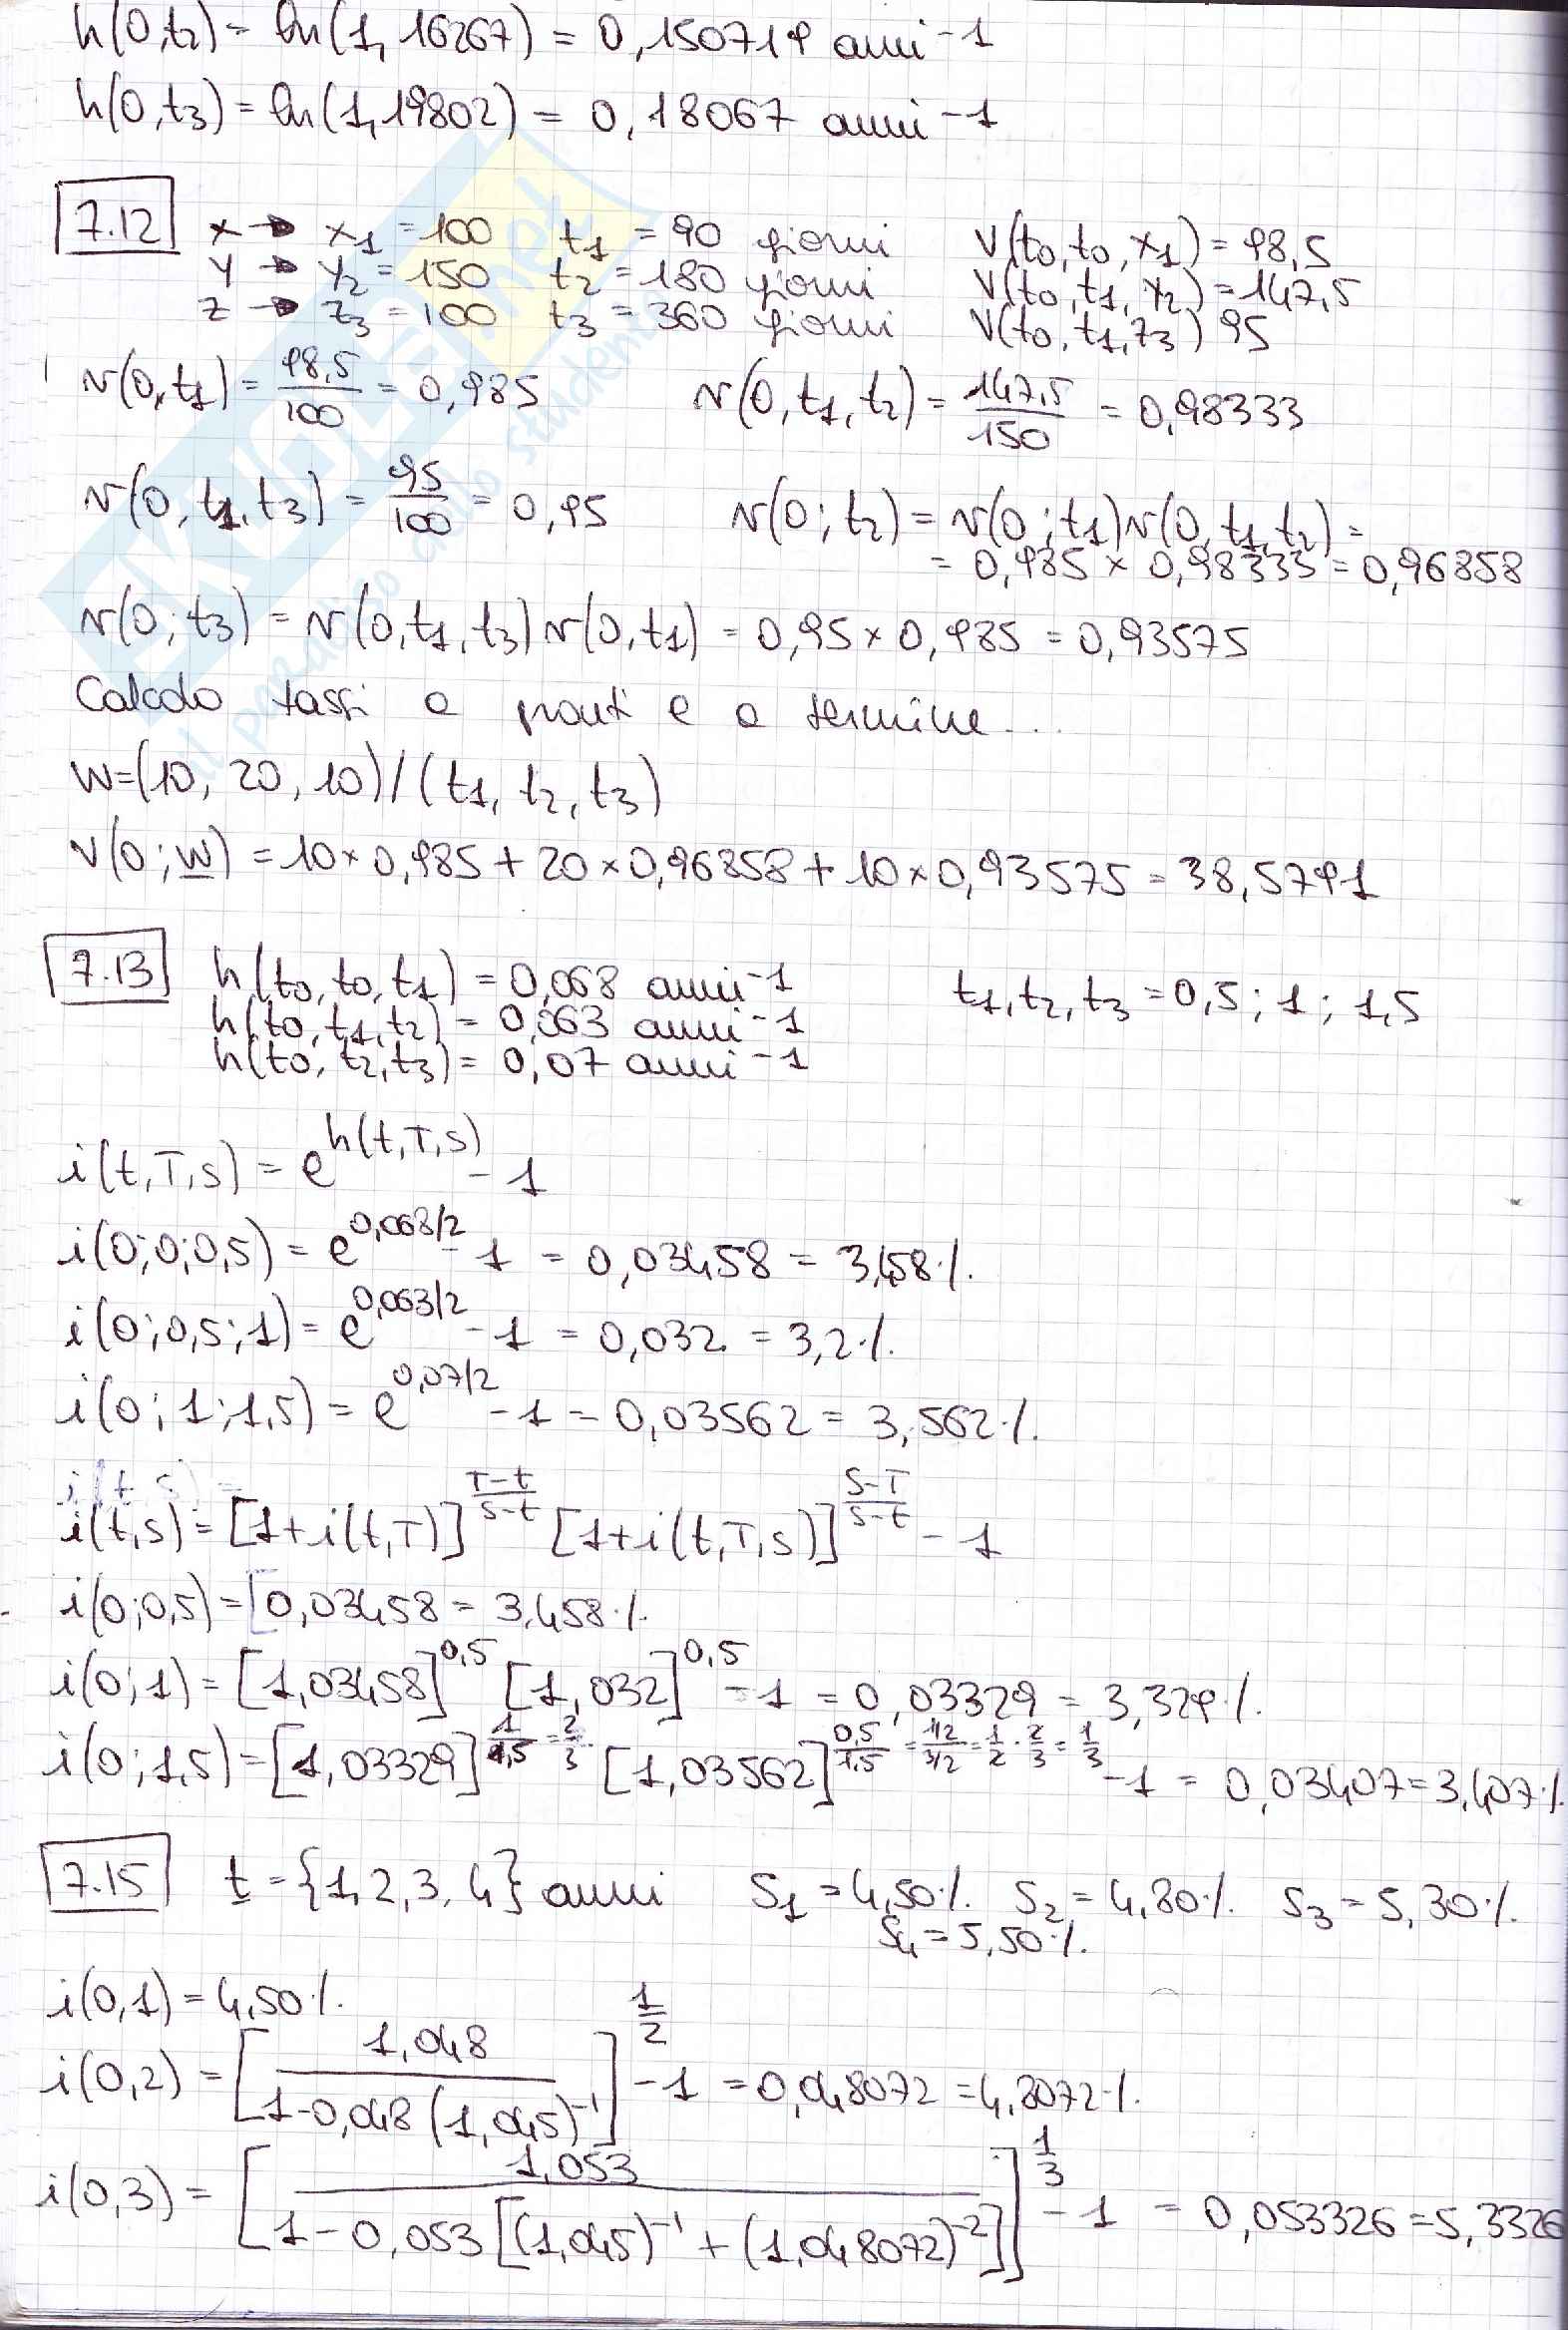 h(0,t2) = ln(1,16267) = 0,150719 anni -1
h(0,t3) = ln(1,19802) = 0,18067 anni -1
7.12 x → x1 = 100 t1 = 90 giorni V(t0,t0,x1) = 98,5
y → y2 = 150 t2 = 180 giorni V(t0,t1,y2) = 147,5
z → z3 = 100 t3 = 360 giorni V(t0,t1,z3) 95
v(0,t1) = 98,5/100 = 0,985 v(0,t1,t2) = 147,5/150 = 0,98333
v(0,t1,t3) = 95/100 = 0,95 v(0;t2) = v(0;t1)v(0,t1,t2) =
= 0,985 × 0,98333 = 0,96858
v(0;t3) = v(0,t1,t3) v(0,t1) = 0,95 × 0,985 = 0,93575
Calcolo tassi a pronti e a termine...
W=(10, 20, 10)/(t1, t2, t3)
V(0;W) = 10×0,985 + 20×0,96858 + 10×0,93575 = 38,5791
7.13 h(t0,t0,t1) = 0,068 anni-1 t1,t2,t3 = 0,5; 1; 1,5
h(t0,t1,t2) = 0,063 anni-1
h(t0,t2,t3) = 0,07 anni-1
i(t,T,s) = e^h(t,T,s) - 1
i(0;0;0,5) = e^0,068/2 - 1 = 0,03458 = 3,458%
i(0;0,5;1) = e^0,063/2 - 1 = 0,032 = 3,2%
i(0;1;1,5) = e^0,07/2 - 1 = 0,03562 = 3,562%
i(t,s) =
i(t,s) = [1+i(t,T)]^(T-t)/(s-t) [1+i(t,T,s)]^(s-T)/(s-t) - 1
i(0;0,5) = [0,03458 = 3,458%
i(0;1) = [1,03458]^0,5 [1,032]^0,5 - 1 = 0,03329 = 3,329%
i(0;1,5) = [1,03329]^1/1,5 = 2/3 [1,03562]^0,5/1,5 = 1/2/3/2 = 1/2 · 2/3 = 1/3 - 1 = 0,03407 = 3,407%
7.15 t = {1,2,3,4} anni S1 = 4,50% S2 = 4,80% S3 = 5,30%
S4 = 5,50%
i(0,1) = 4,50%
i(0,2) = [1,048/1-0,048(1,045)^-1]^1/2 - 1 = 0,048072 = 4,8072%
i(0,3) = [1,053/1-0,053[(1,045)^-1 + (1,048072)^-2]]^1/3 - 1 = 0,053326 = 5,3326